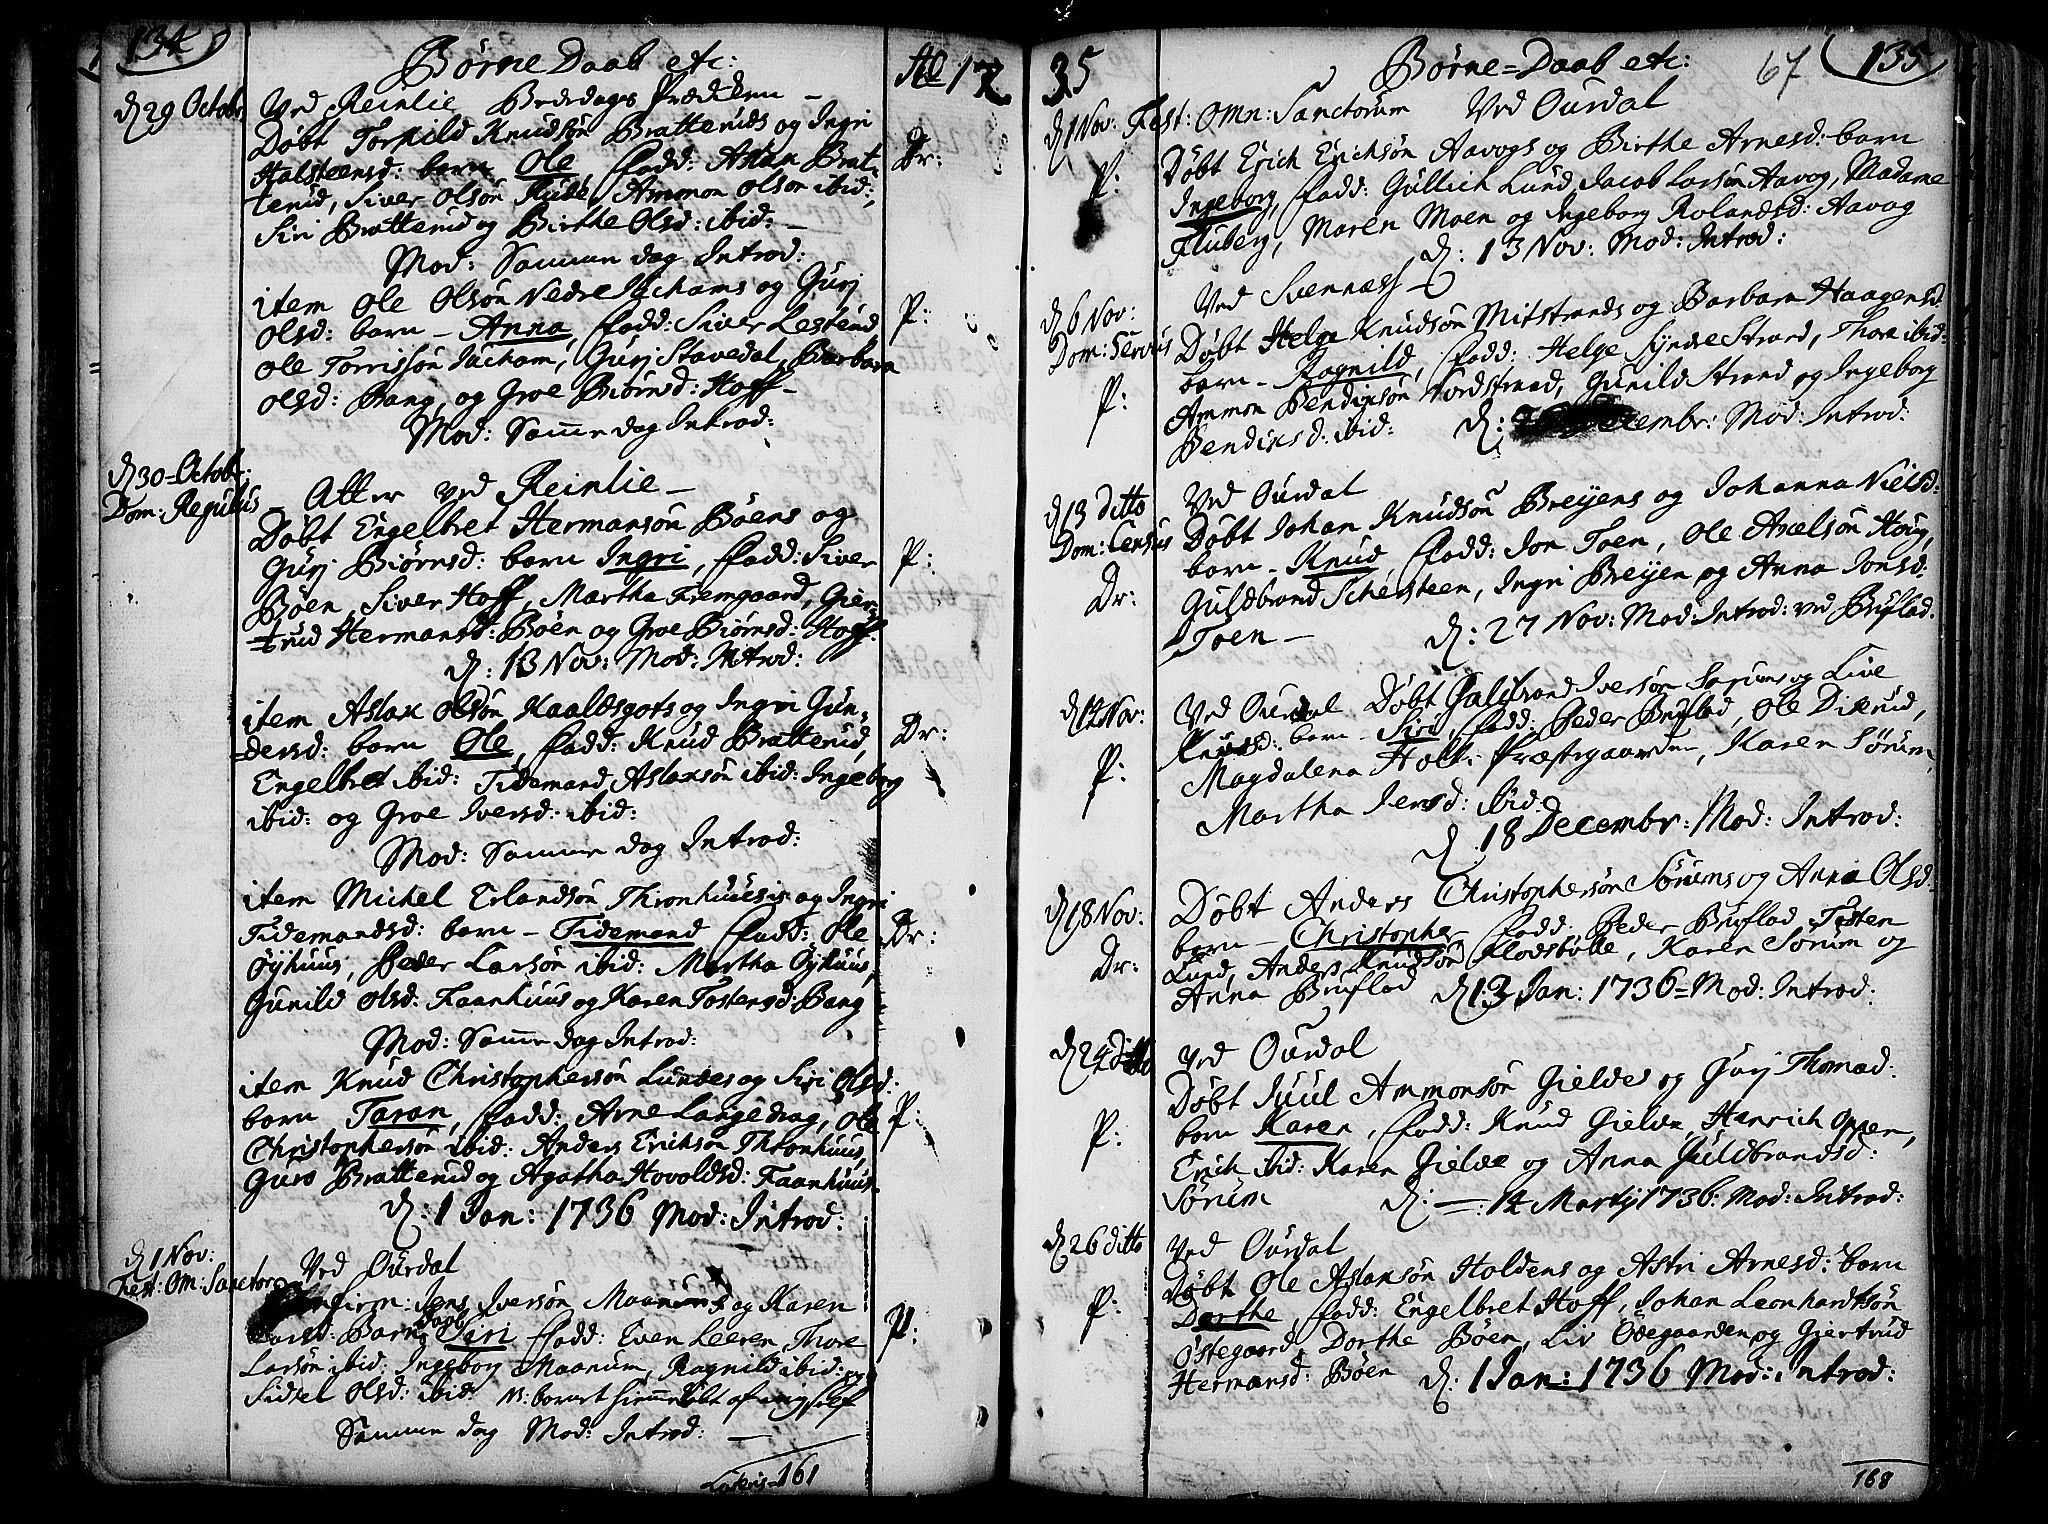 134
Børne Daab etc:
Ao 17
d 29 Octobr:
Ved Reinlie Bededags Prædiken –
Døbt Torkild Knudsøn Bratteruds og Ingri
Halsteensd: barn Ole, fadd: Aslak Brat-
Dr:
terud, Siver Olsøn Ammon Olsøn ibid:
Siri Bratterud og Birthe Olsd: ibid: –
Mod: Samme dag Introd:
item Ole Olsøn Nedre Jachams og Gurj
Olsd: barn – Anna, fadd: Siver Lesterud
P:
Ole Torrissøn Jacham, Gurj Stavedal, Barbara
Olsd: Bang, og Groe Biørnsd: Hoff –
Mod: Samme dag Introd:
d 30 Octob:
Dom: Regulus
Atter ved Reinlie –
Døbt Engelbret Hermansøn Bøens og
Gurj Biørnsd: barn Ingri, fadd: Siver
P:
Bøen, Siver Hoff, Martha Fremgaard, Gier-
trud Hermansd: Bøen og Groe Biørnsd: Hoff.
d: 13 Nov: Mod: Introd:
item Aslak Olsøn og Ingri Gun-
dersd: barn Ole, fadd: Knud Bratterud,
Dr:
Engelbret ibid: Tidemand Aslaksøn ibid: Ingeborg
ibid: og Groe Iversd: ibid:
Mod: Samme dag Introd:
item Michel Erlandsøn Thronhuusis og Ingri
Tidemandsd: barn – Tidemand fadd: Ole
Dr:
Øyhuus, Peder Larsøn ibid: Martha Øyhuus,
Gunild Olsd: Faanhuus og Karen Tostensd: Bang
Mod: Samme dag Introd:
item Knud Christophersøn Lundes og Siri Olsd:
barn Taran, fadd: Arne Langedrag, Ole
P:
Christophersøn ibid: Anders Erichsøn Thronhuus,
Guro Bratterud og Agatha Hovoldsd: Faanhuus.
d: 1 Jan: 1736 Mod: Introd:
d 1 Nov:
Fest: Om: Sanctor
Ved Ourdal
Confirm: Jens Iversøn Maanums og Karen
Larsd: Barns daab Siri fadd: Even Leeren, Thore
P:
Larsøn ibid: Ingeborg Maanum, Ragnild ibid: og
Sidsel Olsd: ibid N: barnet hiemmedøbt af
Samme dag Mod: Introd: –
161
35
Børne-Daab etc:
67
135
d 1 Nov: Fest: Omn: Sanctorum Ved Ourdal
P:
Døbt Erich Erichsøn Aavogs og Birthe Arnesd: barn
Ingeborg, fadd: Gullich Lund, Jacob Larsøn Aavog, Madame
Fluberg, Maren Moen og Ingeborg Rolandsd: Aavog
d: 13 Nov: Mod: Introd:
Ved Svennæss –
d 6 Nov:
Dom: Servus
Døbt Helge Knudsøn Mitstrands og Barbara Haagensd:
barn – Ragnild, fadd: Helge Syndre Strand, Thore ibid:
P:
Ammon Bendixsøn Nordstrand, Gunild Strand og Ingeborg
Bendixsd: ibid: d: Decembr: Mod: Introd:
d 13 ditto
Dom: Census
Ved Ourdal
Døbt Johan Knudsøn Breyens og Johanna Nielsd:
barn – Knud, fadd: Jon Toen, Ole Axelsøn Houg,
Dr:
Guldbrand Schersteen, Ingri Breyen og Anna Jonsd:
Toen – d: 27 Nov: Mod: Introd: ved Bruflad.
d 14 Nov:
Ved Ourdal Døbt Guldbrand Iversøn Sørums og Live
Knudsd: barn – Siri, fadd: Peder Bruflad, Ole Dikrud,
P:
Magdalena Holt: Præstegaarden, Karen Sørum,
Martha Jensd: ibid:
d 18 Decembr: Mod: Introd:
d 18 Nov:
Døbt Anders Christophersøn Sørums og Anna Olsd:
barn – Christopher fadd: Peder Bruflad Tosten
Dr:
Lund, Anders Knudsøn Flodsbølle, Karen Sørum og
Anna Bruflad d 13 Jan: 1736 – Mod: Introd:
d 24 ditto
Ved Ourdal
Døbt Juul Ammonsøn Gieldes og Gurj Thomasd:
P:
barn Karen, fadd: Knud Gielde, Hanrich Oppen,
Erich ibid: Karen Gielde og Anna Guldbrandsd:
Sørum d: – : 14 Martij 1736: Mod: Introd:
d 26 ditto
Ved Ourdal
Døbt Ole Aslaksøn Holdens og Astri Arnesd: barn
P:
Dorthe, fadd: Engelbret Hoff, Johan Leonhardtsøn
Østegaard, Dorthe Bøen, Liv Ødegaarden og Giertrud
Hermansd: Bøen d: 1 Jan: 1736 Mod: Introd:
168